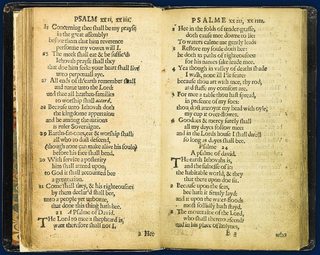 PSALM xxii, xxiii.
25 Concerning thee shall be my prayse
in the great assembly:
before them that him reverence
performe my vowes will I.
26 The meek shall eat & be suffic'd:
Iehovah prayse shall they
that doe him seek: your heart shall live
unto perpetuall aye.
27 All ends of th'earth remember shall
and turne unto the Lord:
and thee all heathen-families
to worship shall accord.
28 Because unto Iehovah doth
the kingdome appertaine:
and he among the nations
is ruler Soveraigne.
29 Earths fat-ones, eat & worship shall:
all who to dust descend,
(though none can make alive his soule)
before his face shall bend.
30 With service a posterity
him shall attend upon;
to God it shall accounted bee
a generation.
31 Come shall they, & his righteousnes
by them declar'd shall bee,
unto a people yet unborne,
that done this thing hath hee.
23 A Psalme of David.
The Lord to mee a shepheard is,
want therefore shall not I.
2 Hee
PSALME xxiii, xxiiii.
2 Hee in the folds of tender-grasse,
doth cause mee downe to lie:
To waters calme me gently leads
3 Restore my soule doth hee:
he doth in paths of righteousnes:
for his names sake leade mee.
4 Yea though in valley of deaths shade
I walk, none ill I'le feare:
because thou art with mee, thy rod,
and staffe my comfort are.
5 For mee a table thou hast spread,
in presence of my foes:
thou dost annoynt my head with oyle,
my cup it over-flowes.
6 Goodnes & mercy surely shall
all my dayes follow mee:
and in the Lords house I shall dwell
so long as dayes shall bee.
Psalme 24
A psalme of david.
The earth Iehovahs is,
and the fulnesse of it:
the habitable world, & they
that there upon doe sit.
2 Because upon the seas,
hee hath it firmly layd:
and it upon the water-floods
most sollidly hath stayd.
3 The mountaine of the Lord,
who shall thereto ascend?
and in his place of holynes,
E 2 who